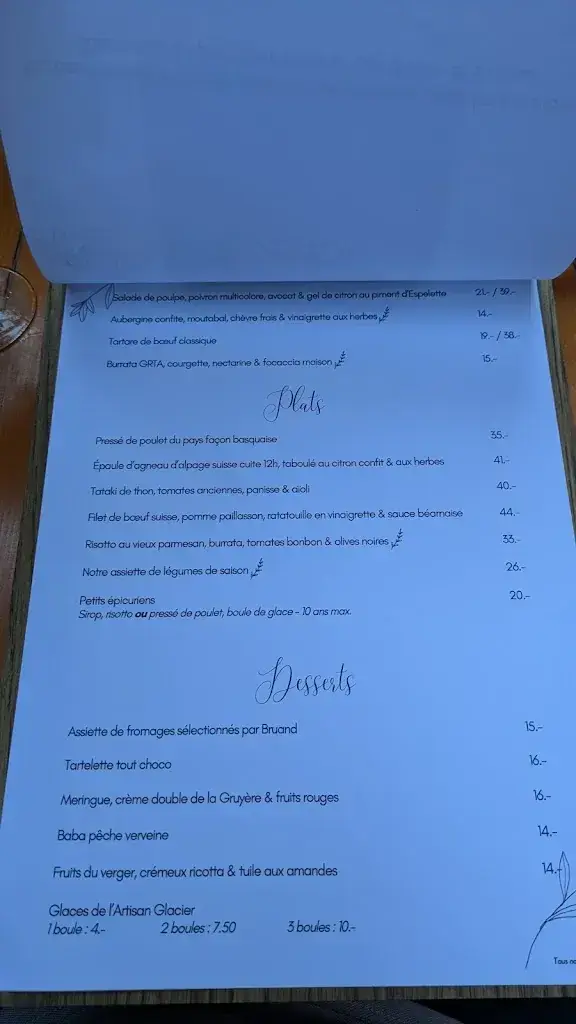 Salade de poulpe, poivron multicolore, avocat & gel de citron au piment d'Espelette 21.- / 39.-
Aubergine confite, moutabal, chèvre frais & vinaigrette aux herbes 14.-
Tartare de bœuf classique 19.- / 38.-
Burrata GRTA, courgette, nectarine & focaccia maison 15.-
Plats
Pressé de poulet du pays façon basquaise 35.-
Épaule d'agneau d'alpage suisse cuite 12h, taboulé au citron confit & aux herbes 41.-
Tataki de thon, tomates anciennes, panisse & aïoli 40.-
Filet de bœuf suisse, pomme paillasson, ratatouille en vinaigrette & sauce béarnaise 44.-
Risotto au vieux parmesan, burrata, tomates bonbon & olives noires 33.-
Notre assiette de légumes de saison 26.-
Petits épicuriens 20.-
Sirop, risotto ou pressé de poulet, boule de glace - 10 ans max.
Desserts
Assiette de fromages sélectionnés par Bruand 15.-
Tartelette tout choco 16.-
Meringue, crème double de la Gruyère & fruits rouges 16.-
Baba pêche verveine 14.-
Fruits du verger, crémeux ricotta & tuile aux amandes 14.-
Glaces de l'Artisan Glacier
1 boule : 4.- 2 boules : 7.50 3 boules : 10.-
Tous